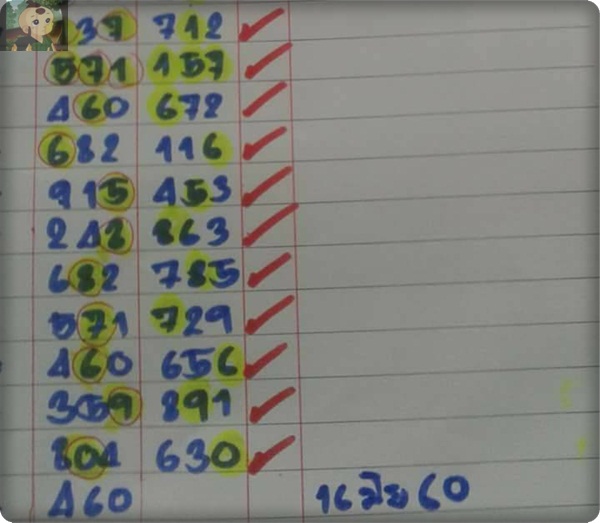 37 712
571 157
460 672
682 116
915 453
248 863
682 785
571 729
460 656
359 891
804 630
460 16 มิย 60